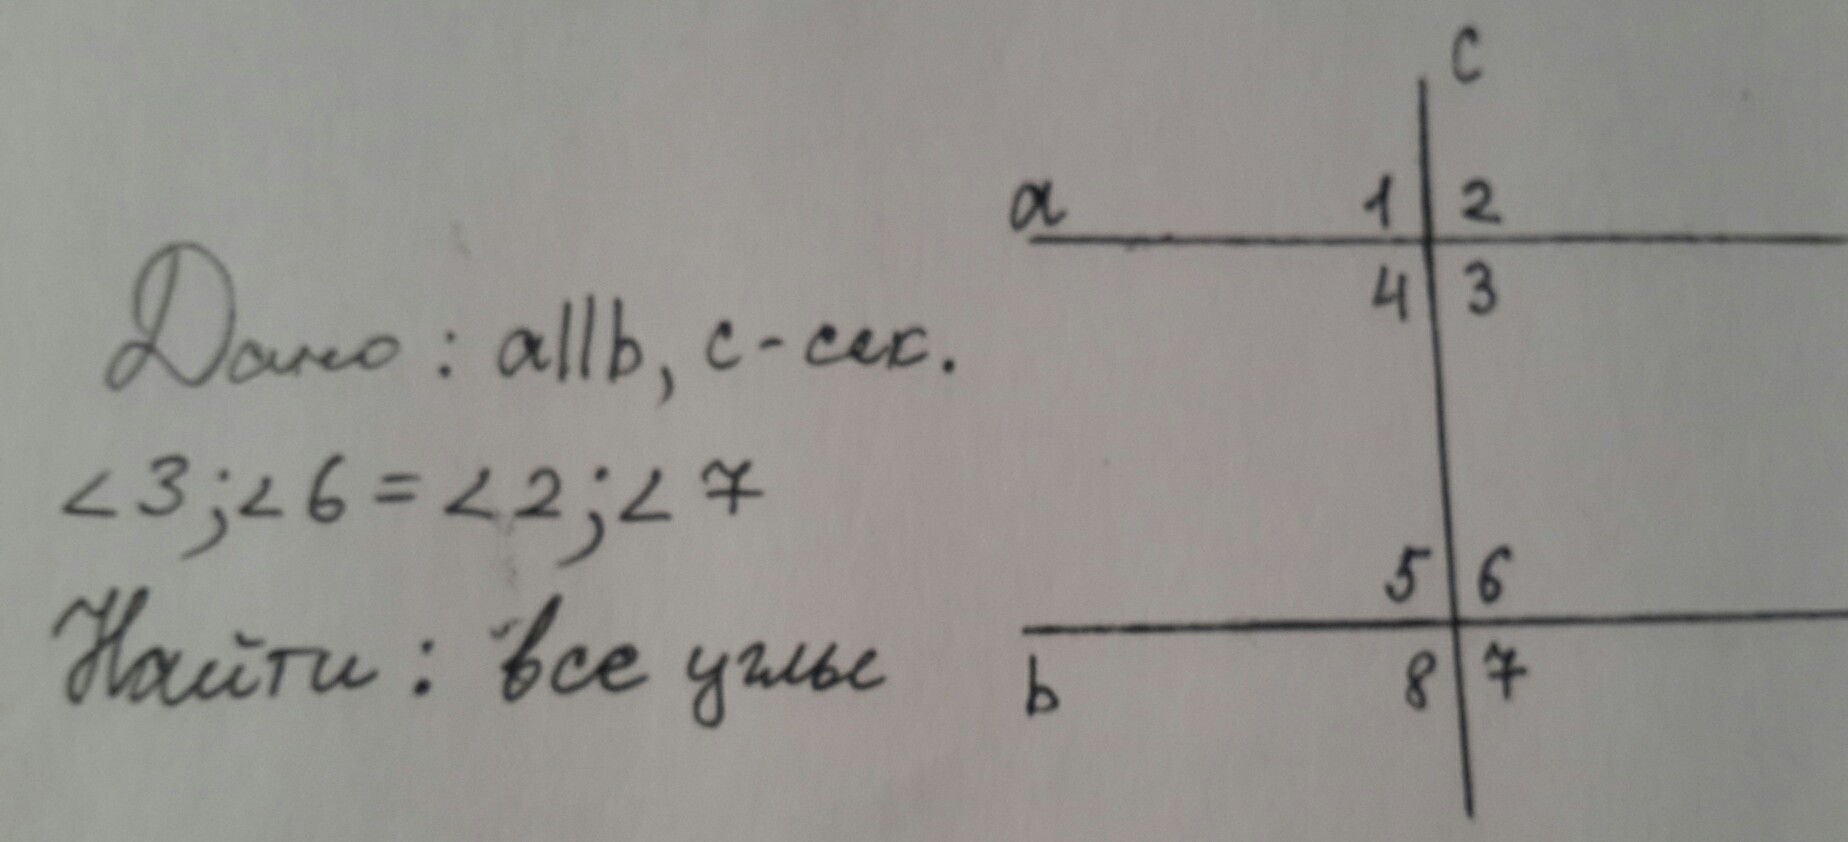 Дано: a||b, c-сек.
∠3;∠6=∠2;∠7
Найти: все углы
c
a
1 2
4 3
5 6
b
8 7